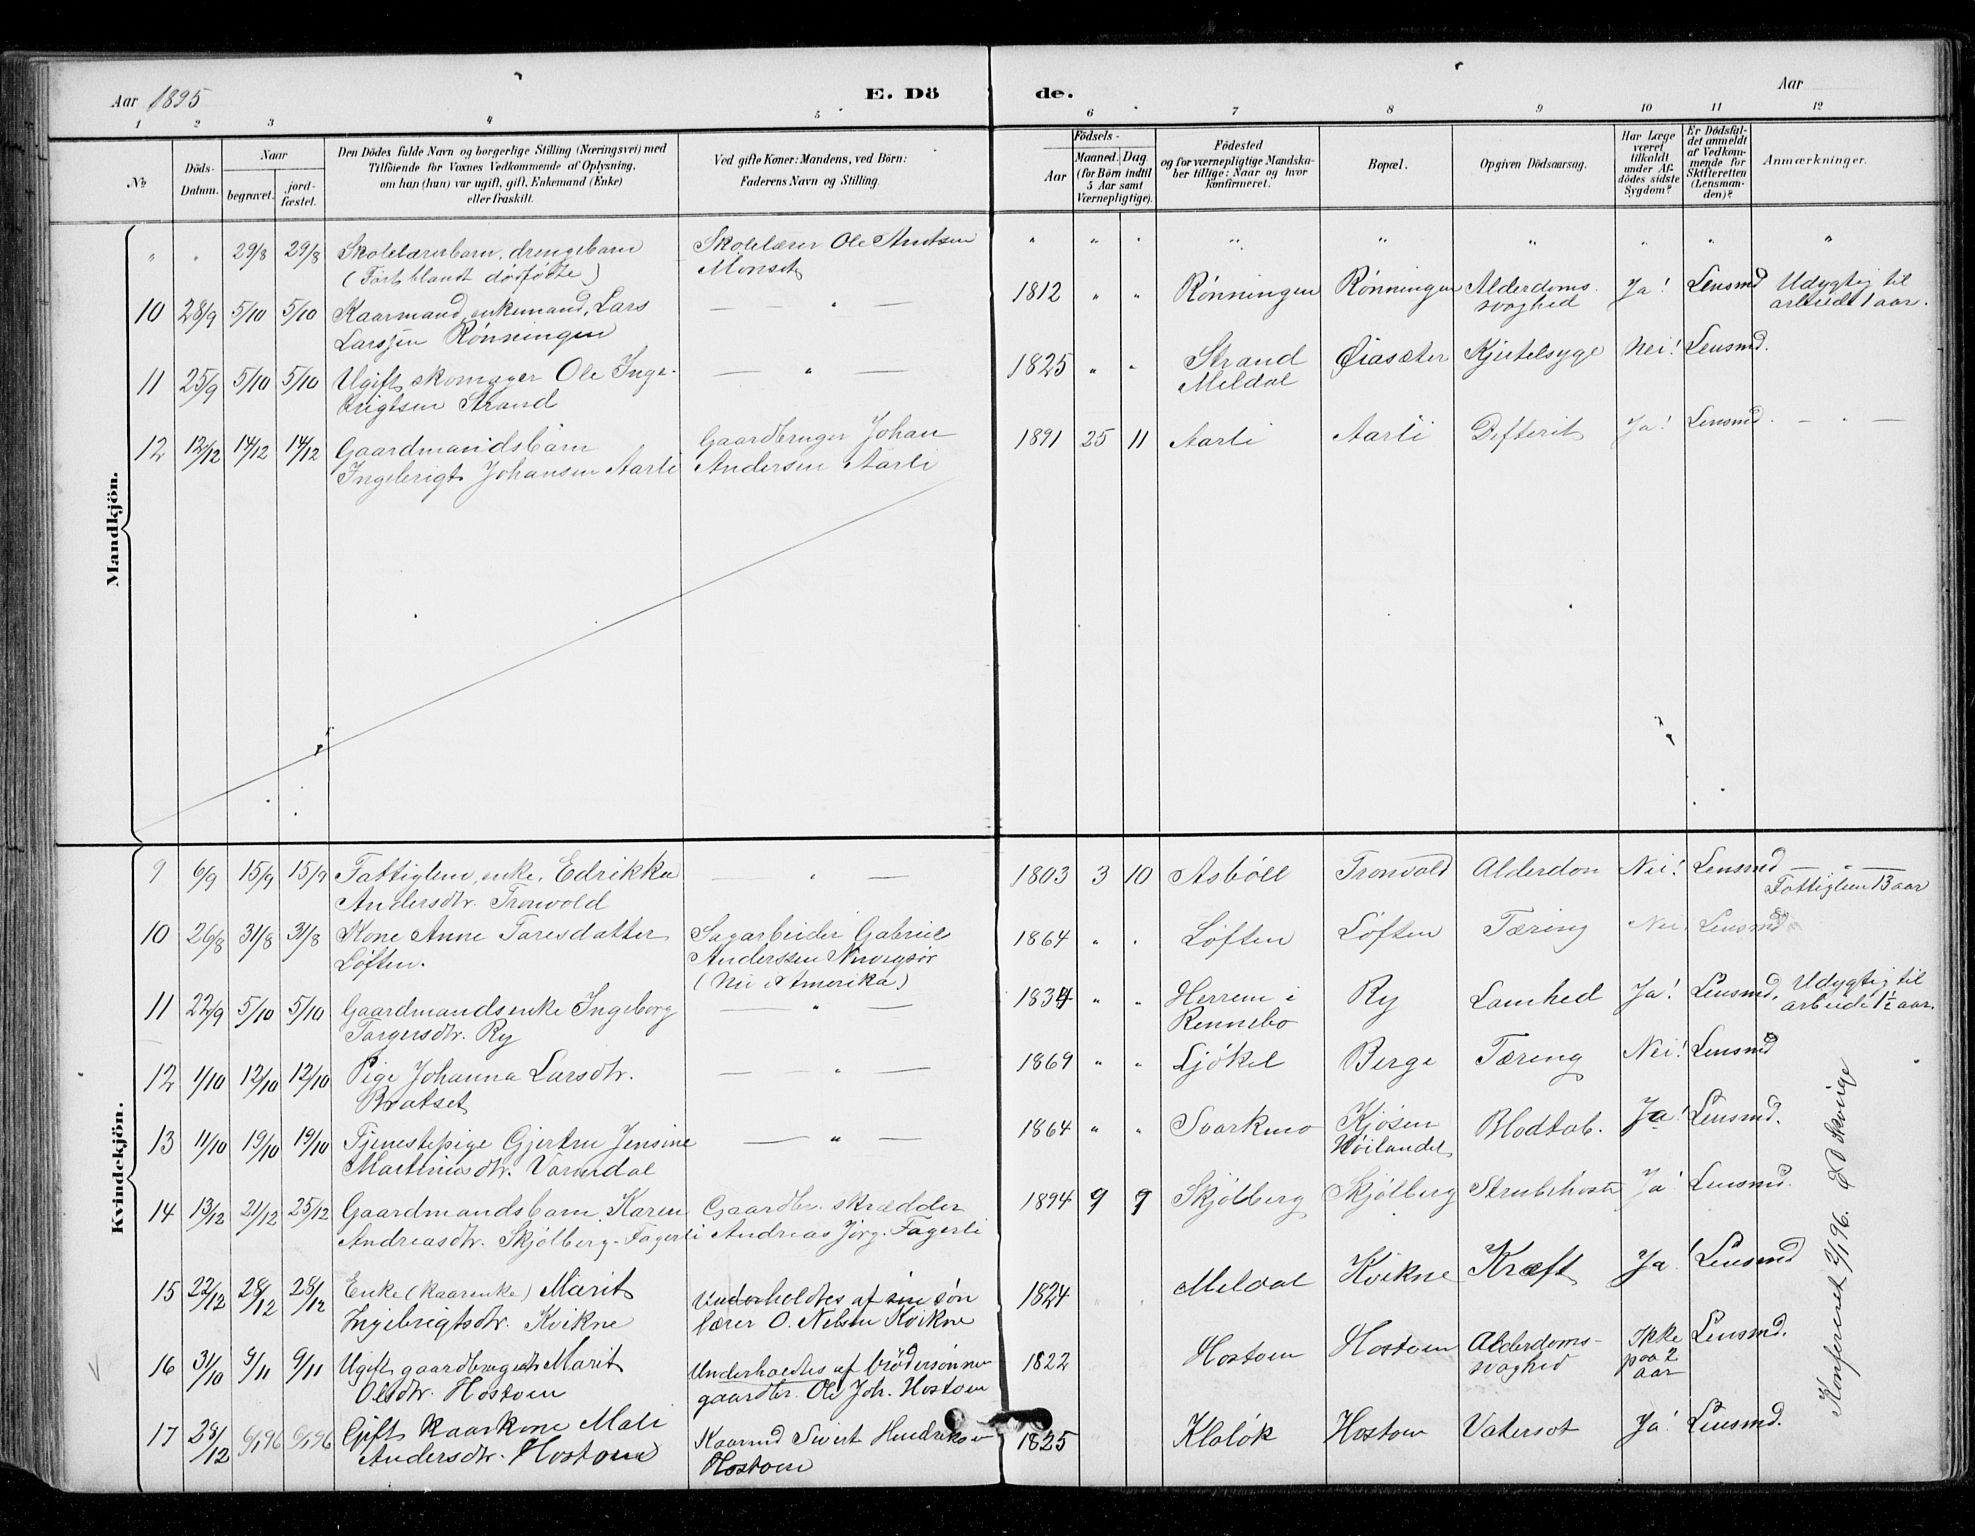 Aar 1895
E. Dö
de.
Aar
1 2 3 4 5 6 7 8 9 10 11 12
No
Döds-
Datum.
Naar
begravet.
jord-
fæstet.
Den Dödes fulde Navn og borgerlige Stilling (Næringsvei) med
Tilföiende for Voxnes Vedkommende af Oplysning,
om han (hun) var ugift, gift, Enkemand (Enke)
eller fraskilt.
Ved gifte Koner: Mandens, ved Börn:
Faderens Navn og Stilling.
Födsels-
Aar
Maaned. Dag
(for Börn indtil
5 Aar samt
Værnepligtige).
Födested
og for værnepligtige Mandska-
ber tillige: Naar og hvor
konfirmeret.
Bopæl.
Opgiven Dödsaarsag.
Har Læge
været
tilkaldt
under Af-
dödes sidste
Sygdom?
Er Dödsfal-
det anmeldt
af Vedkom-
mende for
Skifteretten
(Lensman-
den)?
Anmærkninger.
Mandkjön.
" " 29/8 29/8 Skolelærerbarn, drengebarn Skolelærer Ole Arntsen " " " " " " " " "
(Fort blandt dødfødte) Monset
10 28/9 5/10 5/10 Kaarmand, enkemand, Lars — " — 1812 " " Rønningen Rønningen Alderdoms- Ja! Lensmd Udygtig til
Larssen Rønningen svaghed arbeidet 1 aar.
11 25/9 5/10 5/10 Ugift skomager Ole Inge- — " — 1825 " " Strand Øiasæter Kjertelsyge Nei! Lensmd.
brigtsen Strand Meldal
12 12/12 14/12 14/12 Gaardmandsbarn Gaardbruger Johan 1891 25 11 Aarli Aarli Difterit Ja! Lensmd. — " —
Ingebrigt Johansen Aarli Andersen Aarli
Kvindekjön.
9 6/9 15/9 15/9 Fattiglem, enke, Edrikka — " — 1803 3 10 Asböll Tronvold Alderdom Nei! Lensmd — " —
Andersdtr. Tronvold Fattiglem 13 aar
10 26/8 31/8 31/8 Kone Anne Taresdatter Sagarbeider Gabriel 1864 " " Løften Løften Tæring Nei Lensmd
Løften. Anderssen
(Nu i Amerika)
11 22/9 5/10 5/10 Gaardmandsenke Ingeborg — " — 1834 " " Herrem i Ry Lamhed Ja! Lensmd. Udygtig til
Torgersdtr. Ry Rennebo arbeide 1½ aar.
12 1/10 12/10 12/10 Pige Johanna Larsdtr. — " — 1869 " " Ljøkel Berge Tæring Nei! Lensmd
Bratset
13 11/10 19/10 19/10 Tjenestepige Gjertru Jensine — " — 1864 " " Svarkmo Kjösen Blodtab. Ja! Lensmd.
Martinusdtr. Varmdal Höilandet
14 13/12 21/12 25/12 Gaardmandsbarn Karen Gaardbr. skrædder 1894 9 9 Skjølberg Skjølberg Strubehoste Ja! Lensmd.
Andreasdtr. Skjølberg-Fagerli Andreas Jörg. Fagerli
15 22/12 28/12 28/12 Enke (kaarenke) Marit Underholdtes af sin søn 1824 Meldal Kvikne Kræft Ja! Lensmd
Ingebrigtsdtr. Kvikne lærer O. Nelsen Kvikne
16 31/10 9/11 9/11 Ugift gaardbruger Marit Underholdtes af brödersönnen 1822 Hostoen Hostoen Alderdoms- Ikke Lensmd.
Olsdtr. Hostoen gaardbr. Ole Joh. Hostoen svaghed paa 2
aar
17 28/12 6/1 96 6/1 96 Gift kaarkone Mali Kaarmd Sivert Hendriksen 1825 Klølök Hostoen Vatersot Ja! Lensmd.
Andersdtr. Hostoen Hostoen
Konfereret 2/1 96.